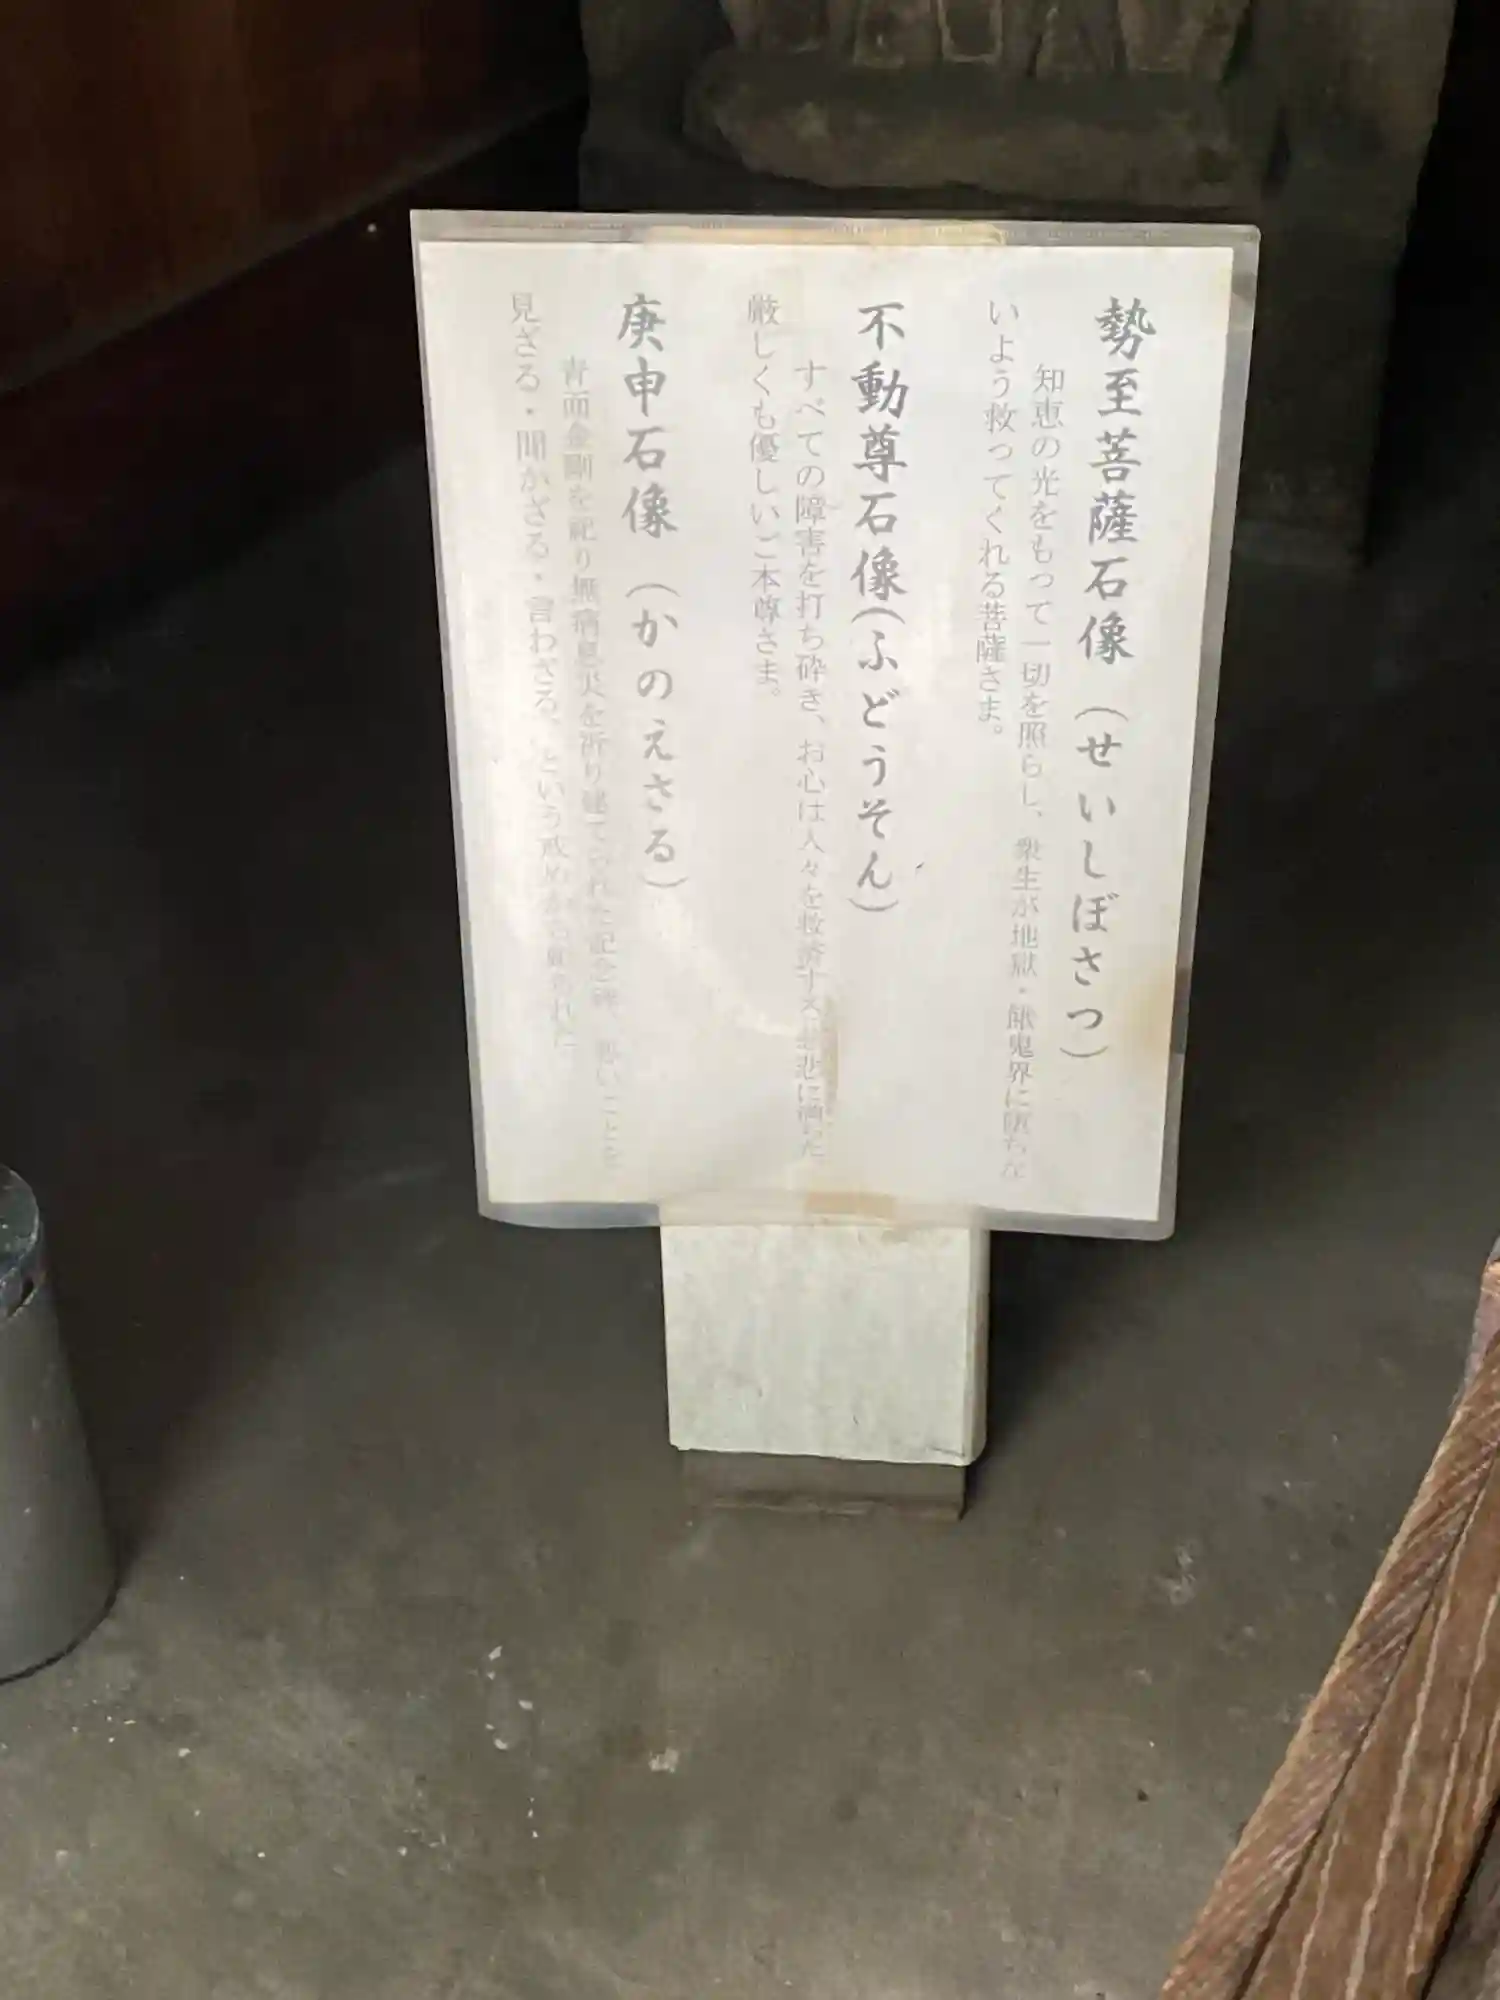 勢至菩薩石像（せいしぼさつ）
知恵の光をもって一切を照らし、衆生が地獄・餓鬼界に堕ちな
いよう救ってくれる菩薩さま。
不動尊石像（ふどうそん）
すべての障害を打ち砕き、お心は人々を救済する慈悲に満ちた
厳しくも優しいご本尊さま。
庚申石像（かのえさる）
青面金剛を祀り無病息災を祈り建てられた記念碑、悪いことを
見ざる・聞かざる・言わざる、という戒めから